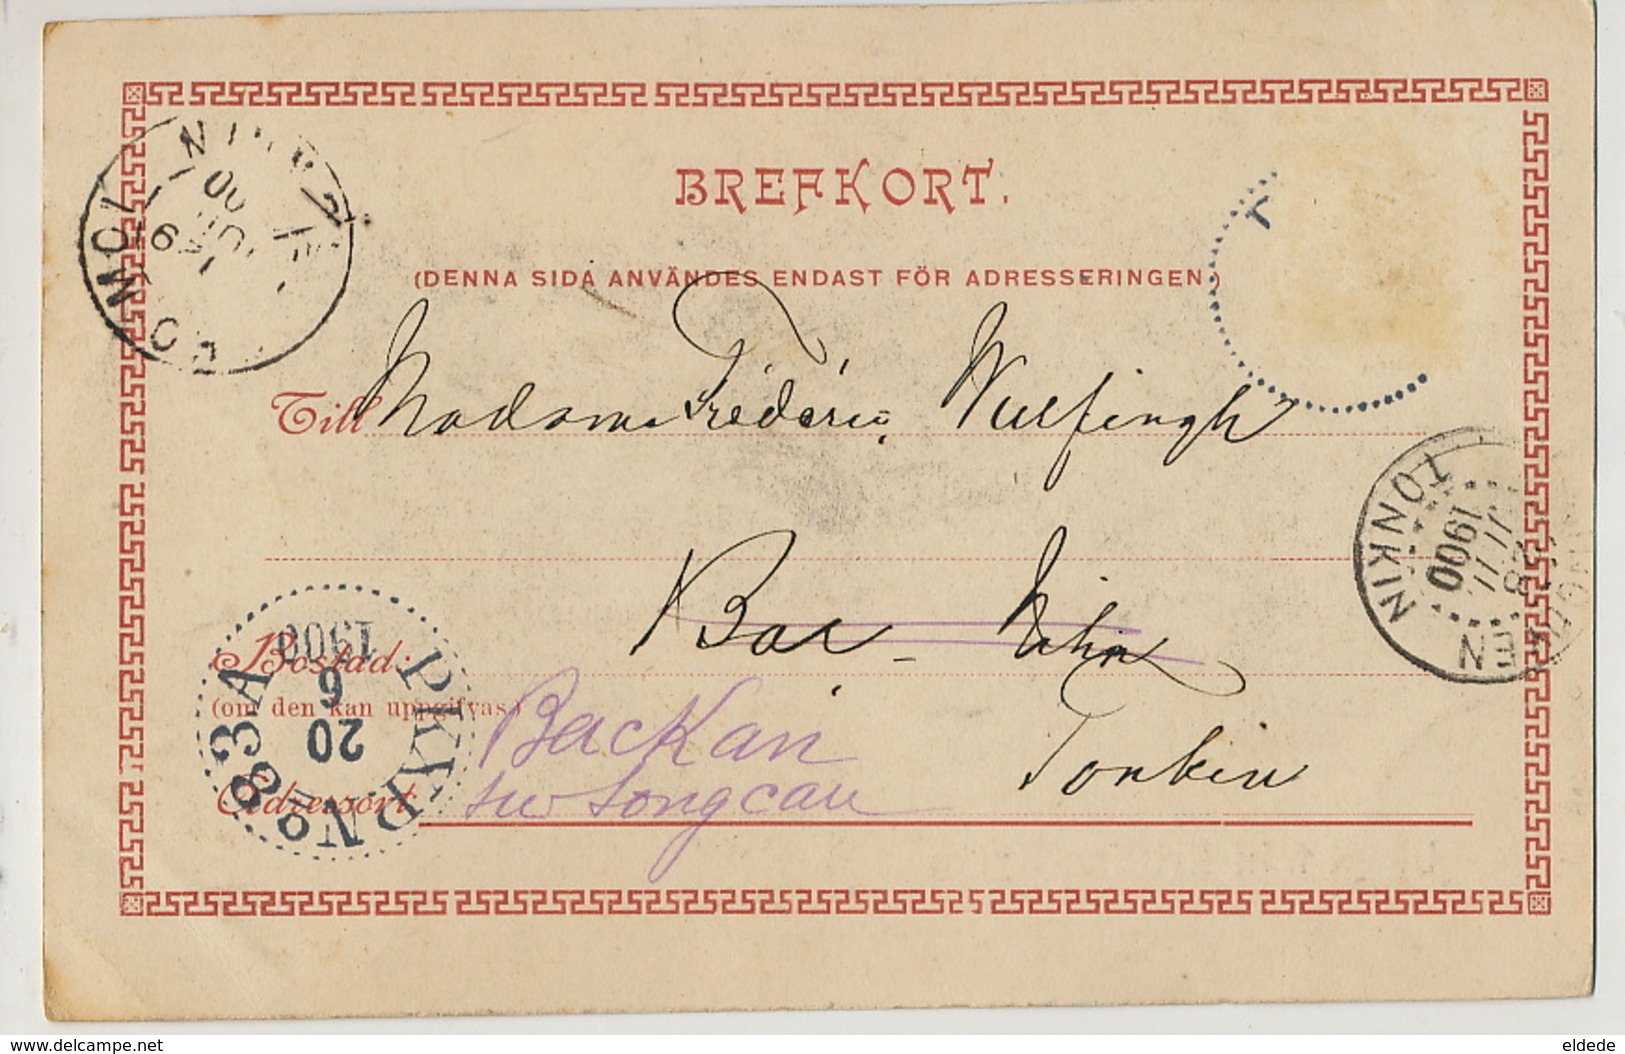 BREFKORT.
(DENNA SIDA ANVÄNDES ENDAST FÖR ADRESSERINGEN.)
Till Madame Frédéric Wulfingh
TONKIN
1900
Bac-Ninh
Bostad:
(om den kan uppgifvas)
Backan
Tonkin
sur Songcau
Adressort
PKXP. No 83 A
20
6
1900
delcampe.net
eldede